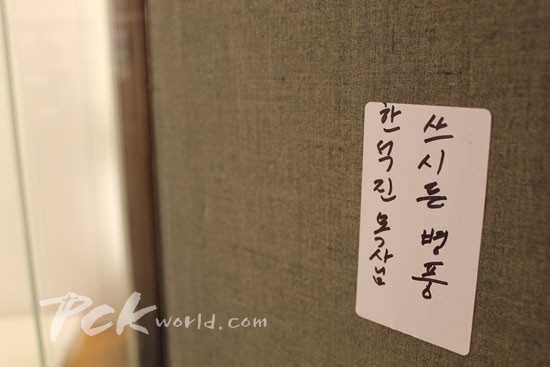 한석진 목사님
쓰시든 병풍
Pckworld.com